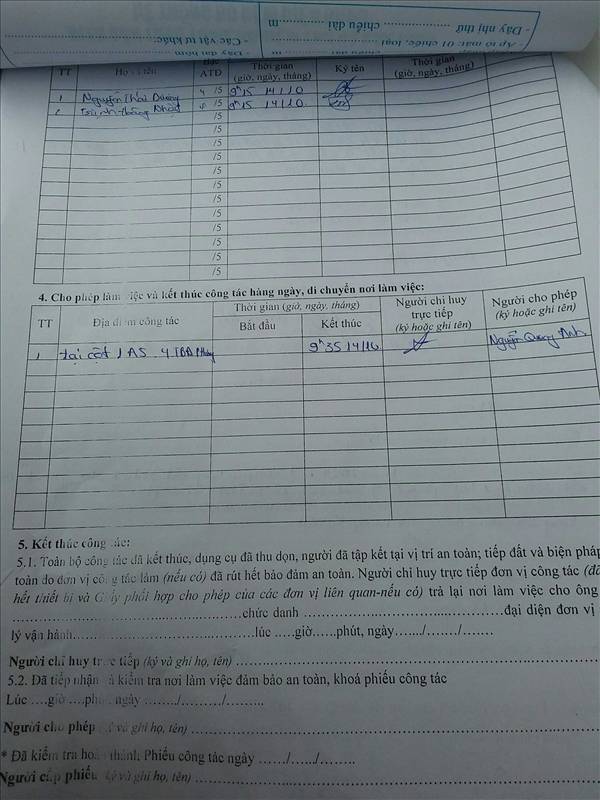 - Dây nhị thứ ............ chiều dài ............m
- Áp tô mát: 01 chiếc, loại
- Các vật tư khác:
TT Họ và tên Bậc ATĐ Thời gian (giờ, ngày, tháng) Ký tên Thời gian (giờ, ngày, tháng)
1 Nguyễn Thái Dương 4 /5 9h15 14/10
2 Trịnh Hồng Nhật 5 /5 9h15 14/10
/5
/5
/5
/5
/5
/5
/5
/5
/5
/5
/5
/5
4. Cho phép làm việc và kết thúc công tác hàng ngày, di chuyển nơi làm việc:
TT Địa điểm công tác Thời gian (giờ, ngày, tháng) Người chỉ huy trực tiếp (ký hoặc ghi tên) Người cho phép (ký hoặc ghi tên)
Bắt đầu Kết thúc
1 tại cột 1 9h35 14/10 Nguyễn Quang Anh
5. Kết thúc công tác:
5.1. Toàn bộ công tác đã kết thúc, dụng cụ đã thu dọn, người đã tập kết tại vị trí an toàn; tiếp đất và biện pháp
toàn do đơn vị công tác làm (nếu có) đã rút hết bảo đảm an toàn. Người chỉ huy trực tiếp đơn vị công tác (đã
hết thiết bị và Giấy phối hợp cho phép của các đơn vị liên quan-nếu có) trả lại nơi làm việc cho ông
............chức danh ............đại diện đơn vị
lý vận hành............lúc .....giờ......phút, ngày......./......./........
Người chỉ huy trực tiếp (ký và ghi họ, tên) ............
5.2. Đã tiếp nhận và kiểm tra nơi làm việc đảm bảo an toàn, khoá phiếu công tác
Lúc ....giờ ....phút, ngày ......../........./.........
Người cho phép (ký và ghi họ, tên) ............
* Đã kiểm tra hoàn thành Phiếu công tác ngày ....../....../........
Người cấp phiếu (ký và ghi họ, tên) ............